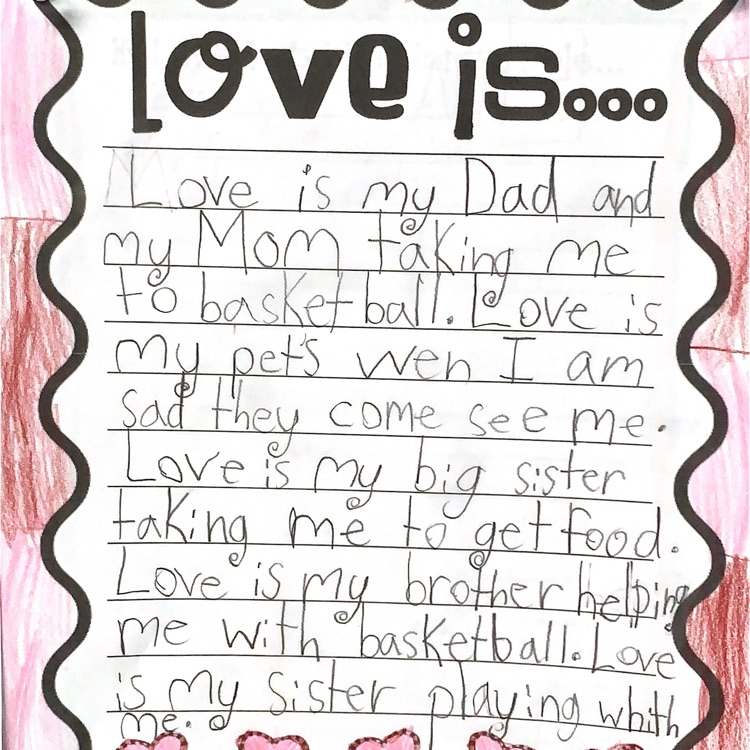 Love is...
Love is my Dad and
my Mom taking me
to basketball. Love is
my pet's wen I am
sad they come see me.
Love is my big sister
taking me to get food.
Love is my brother helping
me with basketball. Love
is my sister playing whith
me.